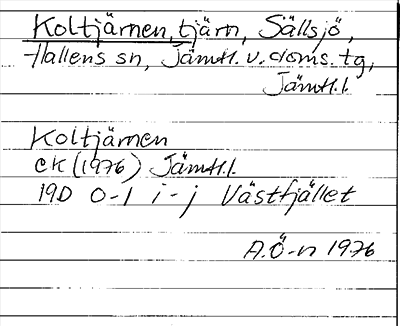 Koltjärnen, tjärn, Sällsjö,
Hallens sn, Jämtl. v. doms. tg,
Jämtl. l.
Koltjärnen
ek (1976) Jämtl. l.
19D 0-1 i-j Västfjället
A.Ö-n 1976